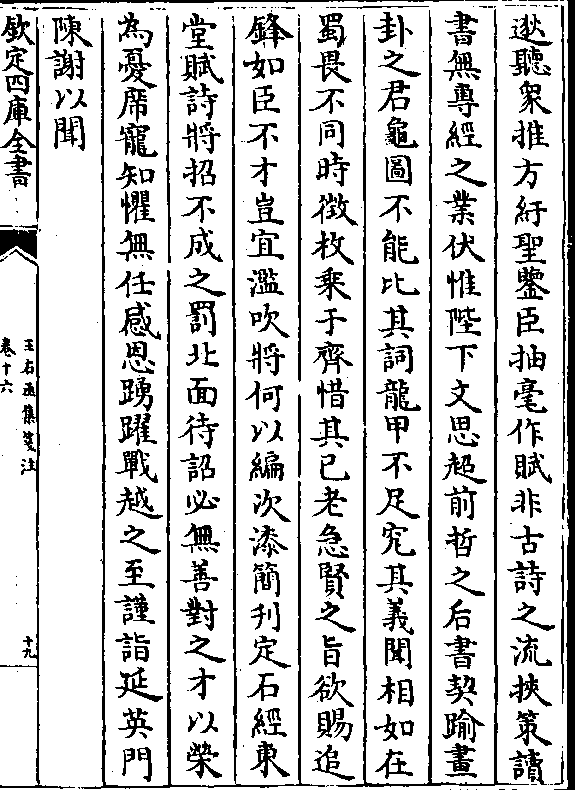 逖聽衆推方紆聖鑒臣抽毫作賦非古詩之流挾策讀
書無專經之業伏惟陛下文思超前哲之后書契踰畫
卦之君龜圖不能比其詞龍甲不足究其義聞相如在
蜀畏不同時徴枚乗于齊惜其已老急賢之旨欲賜追
鋒如臣不才豈宜濫吹將何以編次漆簡刋定石經東
堂賦詩將招不成之罰北面待詔必無善對之才以榮
為憂席寵知懼無任感恩踴躍戰越之至謹詣延英門
陳謝以聞
欽定四庫全書
王右丞集箋注
卷十六
十九